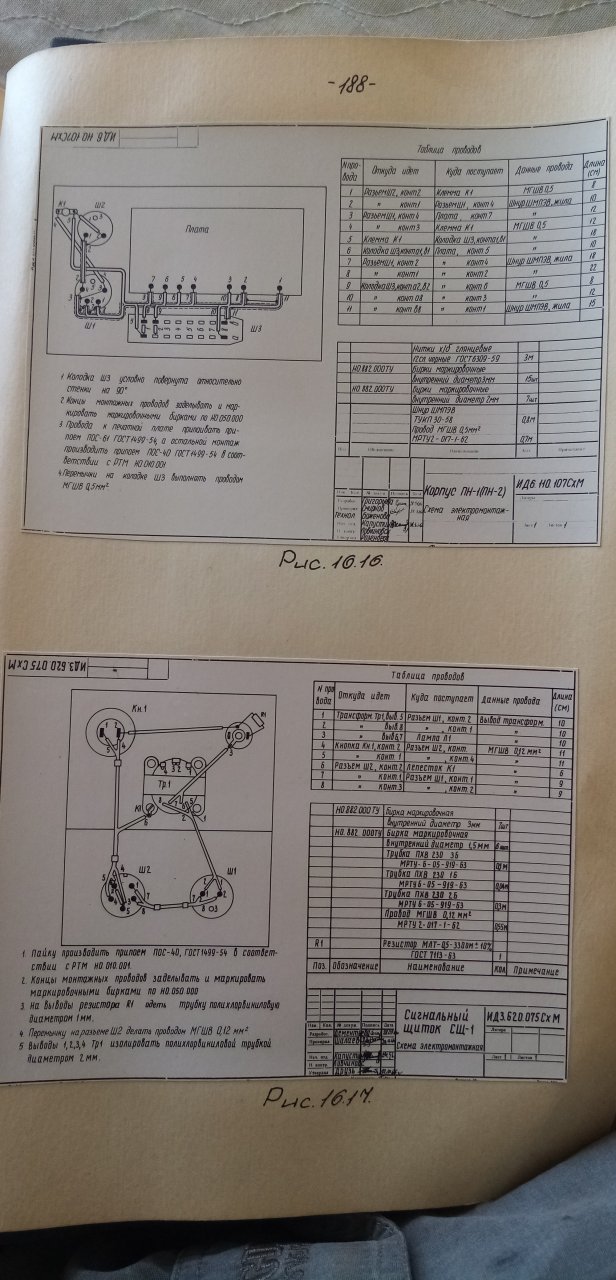 -188-
ИД6 НО 107СхМ
Таблица проводов
N провода Откуда идет Куда поступает Данные провода Длина (СМ)
1 Разъем Ш2, конт 2 Клемма К1 МГШВ 0,5 8
2 " конт1 Разъем Ш1, конт 4 Шнур ШМПЭВ, жила 10
3 Разъем Ш1, конт 4 Плата, конт 7 " 12
4 " конт 3 Клемма К1 МГШВ 0,5 12
5 Клемма К1 Колодка Ш3, конт а1, В1 " 18
6 Колодка Ш3, конт а1, В1 Плата, конт 5 " 10
7 Разъем Ш1, конт 2 " конт 4 Шнур ШМПЭВ, жила 18
8 " конт 1 " конт 2 " 22
9 Колодка Ш3, конт а2, В2 " конт 6 МГШВ 0,5 8
10 " конт а8 " конт 3 " 12
11 " конт В8 " конт 1 Шнур ШМПЭВ, жила 15
К1
Ш2
Плата
7 6 5 4 3 2 1
Ш1
Ш3
1 Колодка Ш3 условно повернута относительно
стенки на 90°
2 Концы монтажных проводов заделывать и мар-
кировать маркировочными бирками по НО.050.000
3 Провода к печатной плате припаивать при-
поем ПОС-61 ГОСТ1499-54, а остальной монтаж
производить припоем ПОС-40 ГОСТ1499-54 в соот-
ветствии с РТМ НО 010 001
4 Перемычки на колодке Ш3 выполнять проводом
МГШВ 0,5мм²
Нитки х/б глянцевые
черные ГОСТ6309-59 3м
НО 882.000ТУ Бирки маркировочные
внутренний диаметр 3мм 15шт
НО 882.000ТУ Бирки маркировочные
внутренний диаметр 2мм 7шт
Шнур ШМПЭВ
ТУКП 30-58 0,8м
Провод МГШВ 0,5мм²
МРТУ2-017-1-62 0,7м
Корпус ПН-1(ПН-2)
Схема электромонтаж-
ная
ИД6 НО 107СхМ
Рис. 16.16.
ИД3.620.075 СхМ
Таблица проводов
N провода Откуда идет Куда поступает Данные провода Длина (СМ)
1 Трансформ Тр1, выв. 5 Разъем Ш1, конт. 2 Вывод трансформ. 10
2 " выв. 8 " , конт. 1 " 10
3 " выв 6,7 Лампа Л1 " 10
4 Кнопка Кн.1, конт. 2 Разъем Ш2, конт. МГШВ 0,12 мм² 11
5 " конт. 1 " , конт. 4 " 11
6 Разъем Ш2, конт. 2 Лепесток К1 " 6
7 " конт. 1 Разъем Ш1, конт. 1 " 9
8 " конт. 3 " , конт. 2 " 9
Кн.1
R1
Тр.1
К1
Ш2
Ш1
НО.882.000ТУ Бирка маркировочная
внутренний диаметр 3мм
НО. 882. 000ТУ Бирка маркировочная
внутренний диаметр 1,5 мм
Трубка ПХВ 230 3б
МРТУ-6-05-919-63
Трубка ПХВ 230 1б
МРТУ6-05-919-63
Трубка ПХВ 230 2Б
МРТУ 6-05-919-63 0,3м
Провод МГШВ 0,12 мм²
МРТУ 2-017-1-62
R1 Резистор МЛТ-0,5-330Ом±10%
ГОСТ 7113-63 1
Поз. Обозначение Наименование Кол Примечание
1. Пайку производить припоем ПОС-40, ГОСТ1499-54 в соответ-
ствии с РТМ НО 010.001.
2. Концы монтажных проводов заделывать и маркировать
маркировочными бирками по НО.050.000
3. На выводы резистора R1 одеть трубку полихлорвиниловую
диаметром 1мм.
4. Перемычку на разъеме Ш2 делать проводом МГШВ 0,12 мм²
5 Выводы 1,2,3,4 Тр1 изолировать полихлорвиниловой трубкой
диаметром 2 мм.
Сигнальный
щиток СЩ-1
Схема электромонтажная
ИД3.620.075СхМ
Рис.16.17.